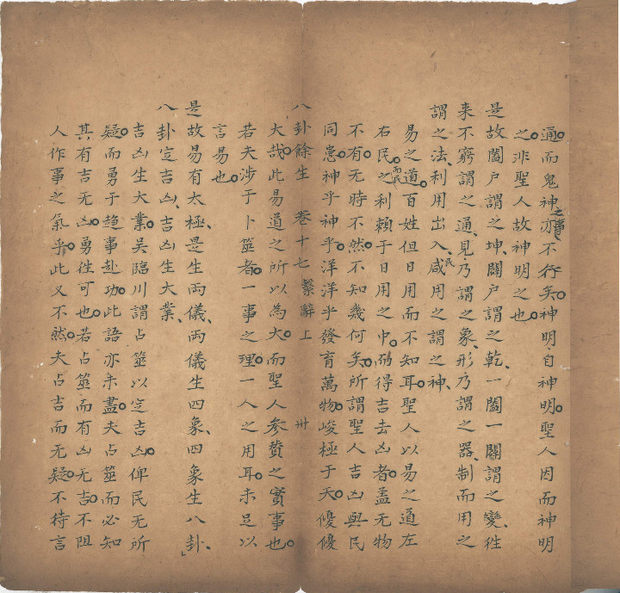 通而鬼神之事亦不行矣神明自神明聖人因而神明
之非聖人故神明之也
是故闔戶謂之坤闢戶謂之乾一闔一闢謂之變徃
来不窮謂之通見乃謂之象形乃謂之器制而用之
謂之法利用出入民咸用之謂之神
易之道百姓但日用而不知耳聖人以易之道左
右民而民之利賴于日用之中𫝑得吉去凶者盖无物
不有无時不然不知幾何矣所謂聖人吉凶與民
同患神乎神乎洋洋乎發育萬物峻極于天優優
八卦餘生 卷十七 繫辭上 卅
大哉此易道之所以為大而聖人参贊之實事也
若夫涉于卜筮者一事之理一人之用耳未足以
言易也
是故易有太極是生兩儀兩儀生四象四象生八卦
八卦定吉凶吉凶生大業
吉凶生大業吴臨川謂占筮以定吉凶俾民无所
疑而勇于趋事赴功此語亦未盡夫占筮而必知
其有吉无凶勇徃可也若占筮而有凶无吉不阻
人作事之氣乎此又不然夫占吉而无疑不待言